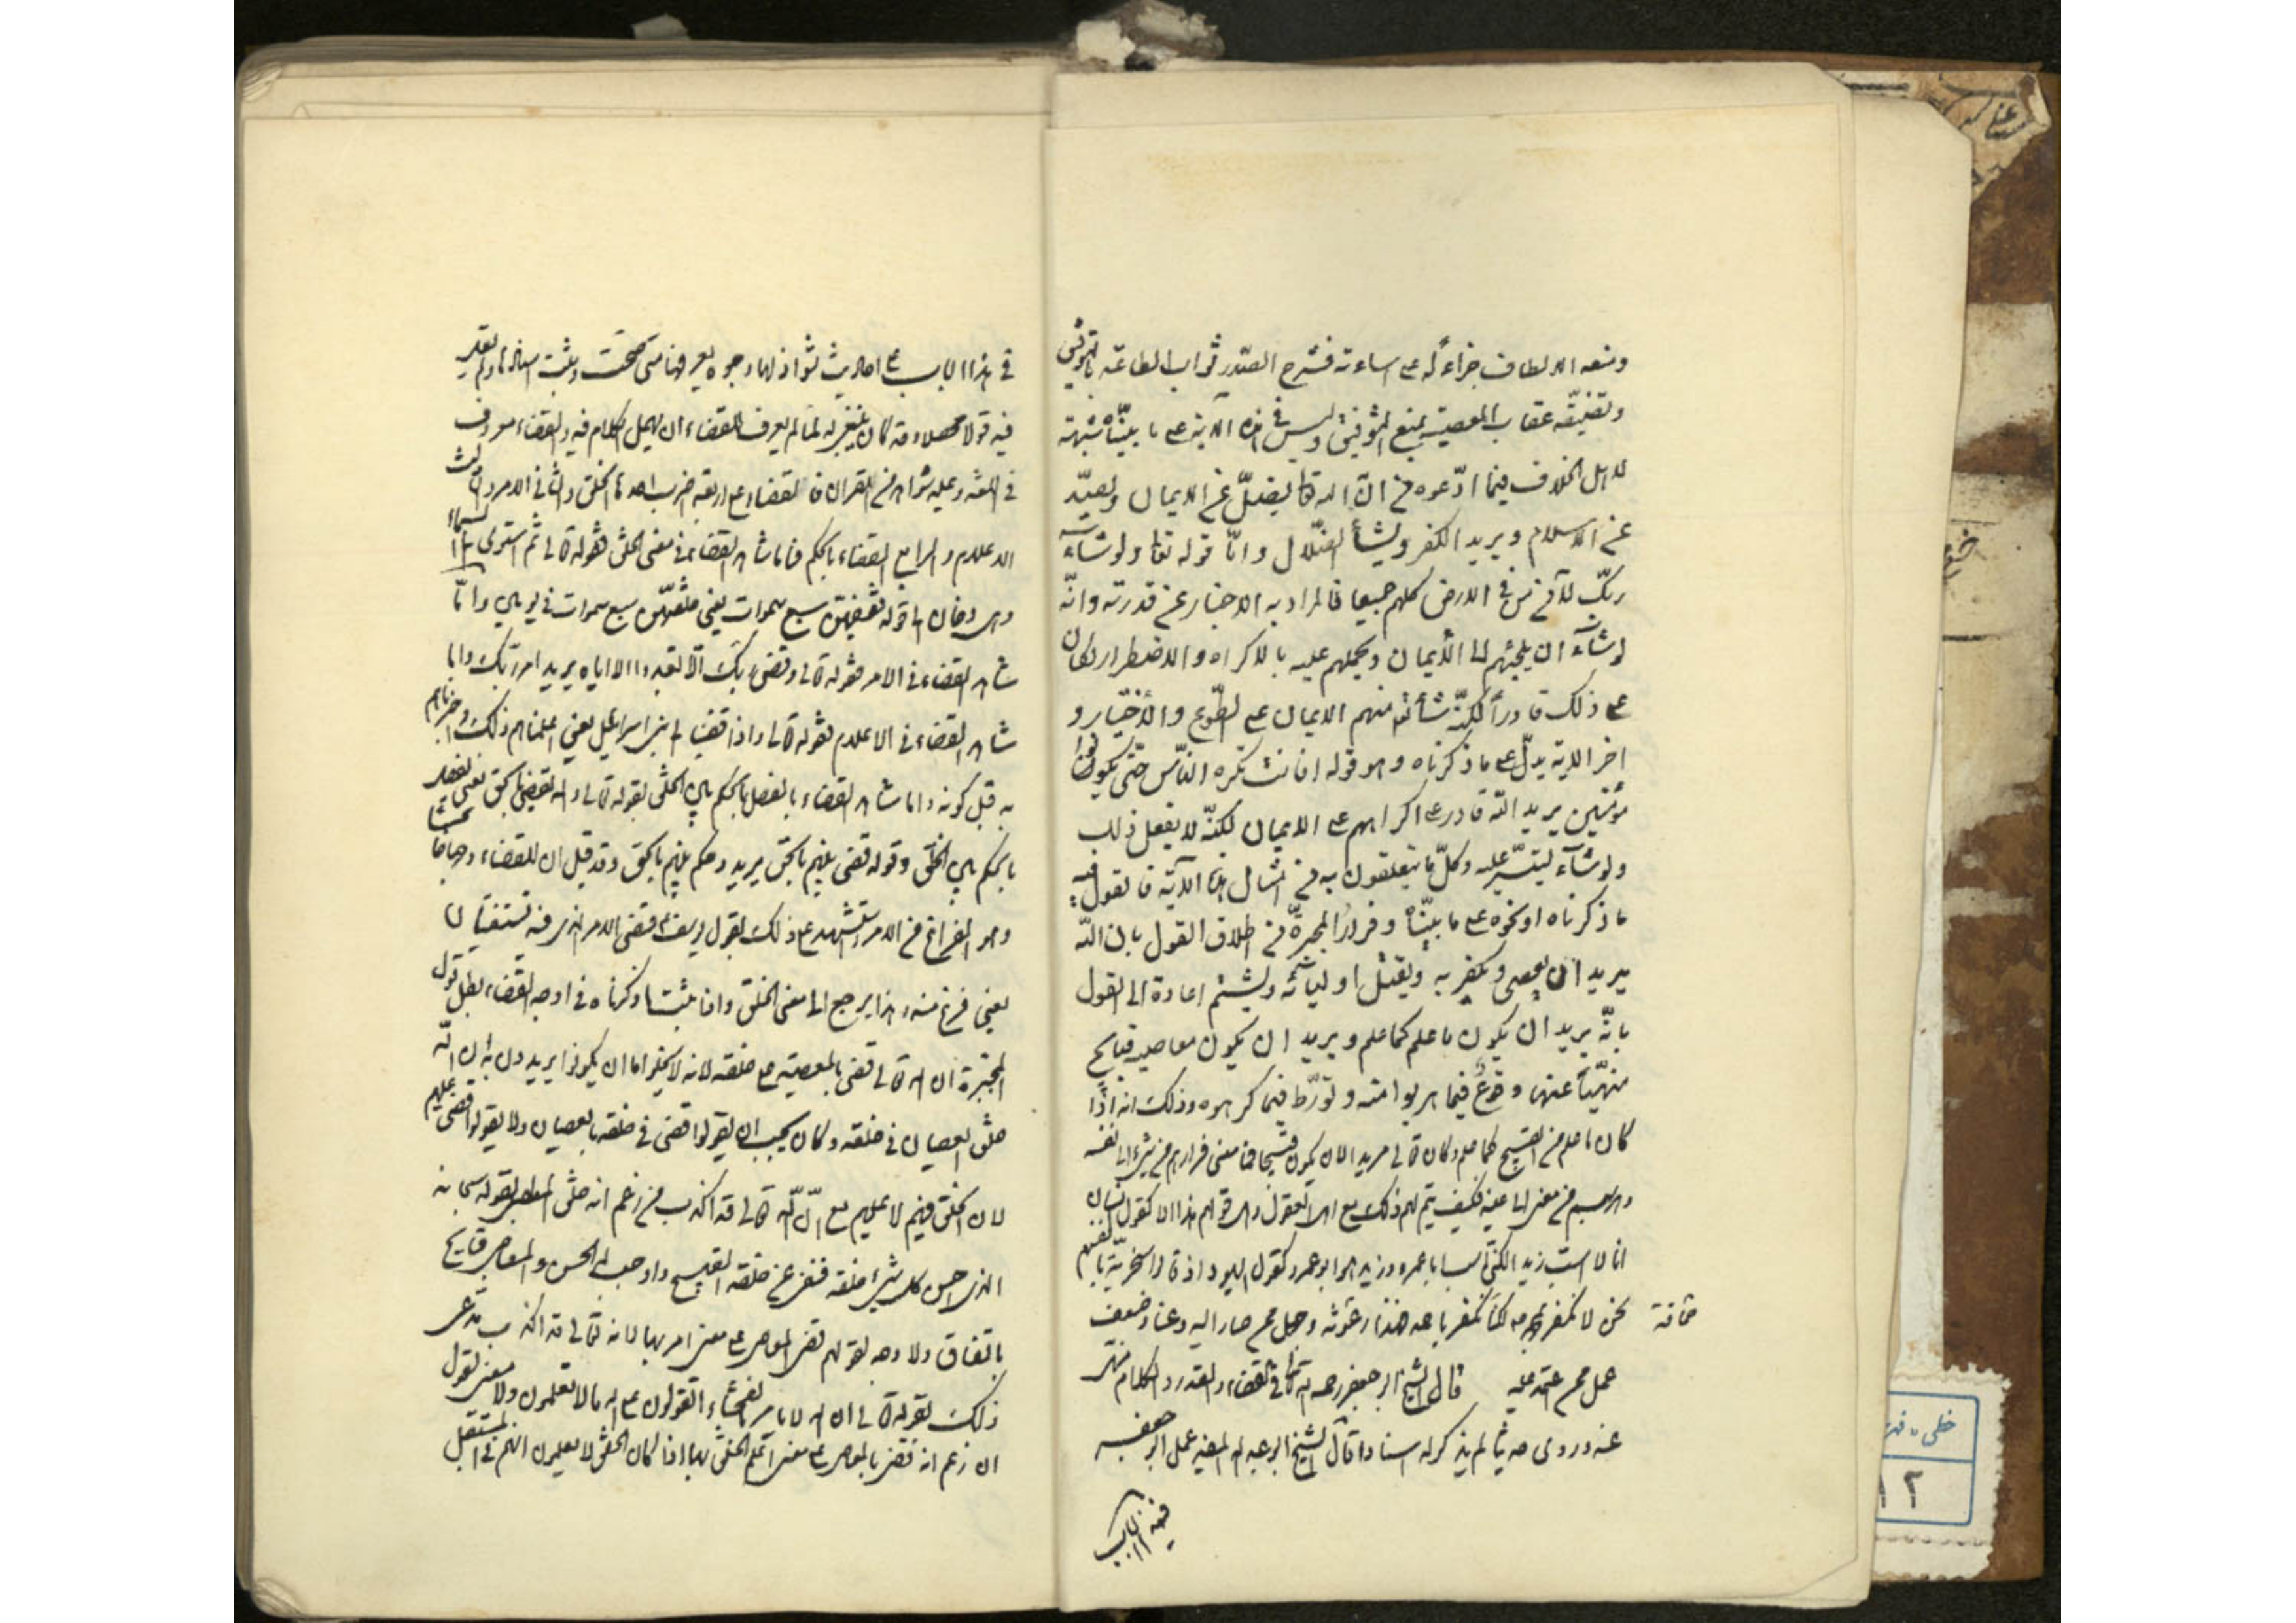 ومنعه الالطاف جزاء له على اساءته فشرح الصدر ثواب الطاعة بالتوفيق
وتضييقه عقاب المعصية بمنع التوفيق وليس في هذه الآية على ما بيناه شبهة
لاهل الخلاف فيما ادّعوه من انّ الله تعا يضلّ عن الايمان ويصدّ
عن الاسلام ويريد الكفر ويشأ الضّلال وامّا قوله تعا ولو شآء
ربّك لآمن من في الارض كلهم جميعا فالمراد به الاخبار عن قدرته وانّه
لو شآء ان يلجئهم الى الأيمان ويحملهم عليه بالاكراه والاضطرار لكان
على ذلك قادراً لكنّه شأ منهم الايمان على الطّوع والأختيار و
اخر الاية يدلّ على ما ذكرناه وهو قوله افانت تكره النّاس حتّى يكونوا
مؤمنين يريد انّه قادر على اكراههم على الايمان لكنّه لا يفعل ذلك
ولو شآء لتيسّر عليه وكلّ ما يتعلقون به من امثال هذه الآية فالقول فيه
ما ذكرناه او نحوه على ما بيّناه وفرار المجبرة من اطلاق القول بان الله
يريد ان يعصى ويكفر به ويقتل اوليائه ويشتم اعادة الى القول
بانّه يريد ان يكون ما علم كما علم ويريد ان يكون معاصيه قبايح
منهيّاً عنها وقوع فيما هربوا منه وتورّط فيما كرهوه وذلك انه اذا
كان ما علم من القبيح كما علم وكان تعالى مريدا لان يكون قبيحا فما معنى فرارهم من شئ الى نفسه
وهربهم من معنى الى عينه فكيف يتم لهم ذلك مع اهل العقول وهل قولهم هذا الا كقول انسان
انا لا اسب زيدا لكنّي اسب ابا عمرو وزيد هو ابو عمرو وكقول اليهود اذ قالوا سخرية بانفسهم
نحن لا نكفر بمحمد لكنا نكفر باحمد فهذا رعونة وجهل ممن صار اليه وعناد وضعف
عمل ممن اعتمد عليه قال الشيخ ابو جعفر رحمه الله تعا في القضاء والقدر والكلام منهى
عنه وروى حديثا لم يذكر له اسنادا قال الشيخ ابو عبد الله المفيد عمل ابو جعفر
في هذا الباب
في هذا الباب على احاديث شواذ لها وجوه يعرفها متى صحت وثبت اسنادها ولم يقل
فيه قولا محصلا وقد كان ينبغى له لما لم يعرف للقضاء ان يهمل الكلام فيه والقضاء معروف
في اللغة وعليه شواهد من القران فالقضاء على اربعة اضرب احدها الخلق والثاني الامر والثالث
الاعلام والرابع القضاء بالحكم فاما شاهد القضاء في معنى الخلق فقوله تعالى ثم استوى الى السماء
وهى دخان الى قوله فقضيهن سبع سموات يعنى خلقهن سبع سموات في يومين واما
شاهد القضاء في الامر فقوله تعالى وقضى ربك الا تعبدوا الا اياه يريد امر ربك واما
شاهد القضاء في الاعلام فقوله تعالى واذا قضينا الى بنى اسرائيل يعنى اعلمناهم ذلك واخبرناهم
به قبل كونه واما شاهد القضاء بالفصل بالحكم بين الخلق فقوله تعالى والله يقضى بالحق يعنى يفصل
بالحكم بين الخلق وقوله قضى بينهم بالحق يريد وحكم بينهم بالحق وقد قيل ان للقضاء وجها خامسا
وهو الفراغ من الامر واستشهد على ذلك بقول يوسف قضى الامر الذى فيه تستفتيان
يعنى فرغ منه وهذا يرجع الى معنى الخلق واذا ثبت ما ذكرناه في اوجه القضاء بطل قول
المجبرة ان الله تعالى قضى بالمعصية على خلقه لانه لا يخلوا اما ان يكونوا يريدون به ان الله
خلق العصيان في خلقه وكان يجب ان يقولوا قضى في خلقه بالعصيان ولا يقولوا قضى عليهم
لان الخلق فيهم لا عليهم مع انّ الله تعالى قد اكذب من زعم انه خلق المعاصى بقوله سبحانه
الذى احسن كل شئ خلقه فنفى عن خلقه القبيح واوجب له الحسن والمعاصى قبايح
بالاتفاق ولا وجه لقولهم قضى المعاصى على معنى امر بها لانه تعالى قد اكذب مدعى
ذلك بقوله تعالى ان الله لا يامر بالفحشاء اتقولون على الله ما لا تعلمون ولا معنى لقول
ان زعم انه قضى بالمعاصى على معنى اعلم الخلق بها اذا كان الخلق لا يعلمون انهم في المستقبل